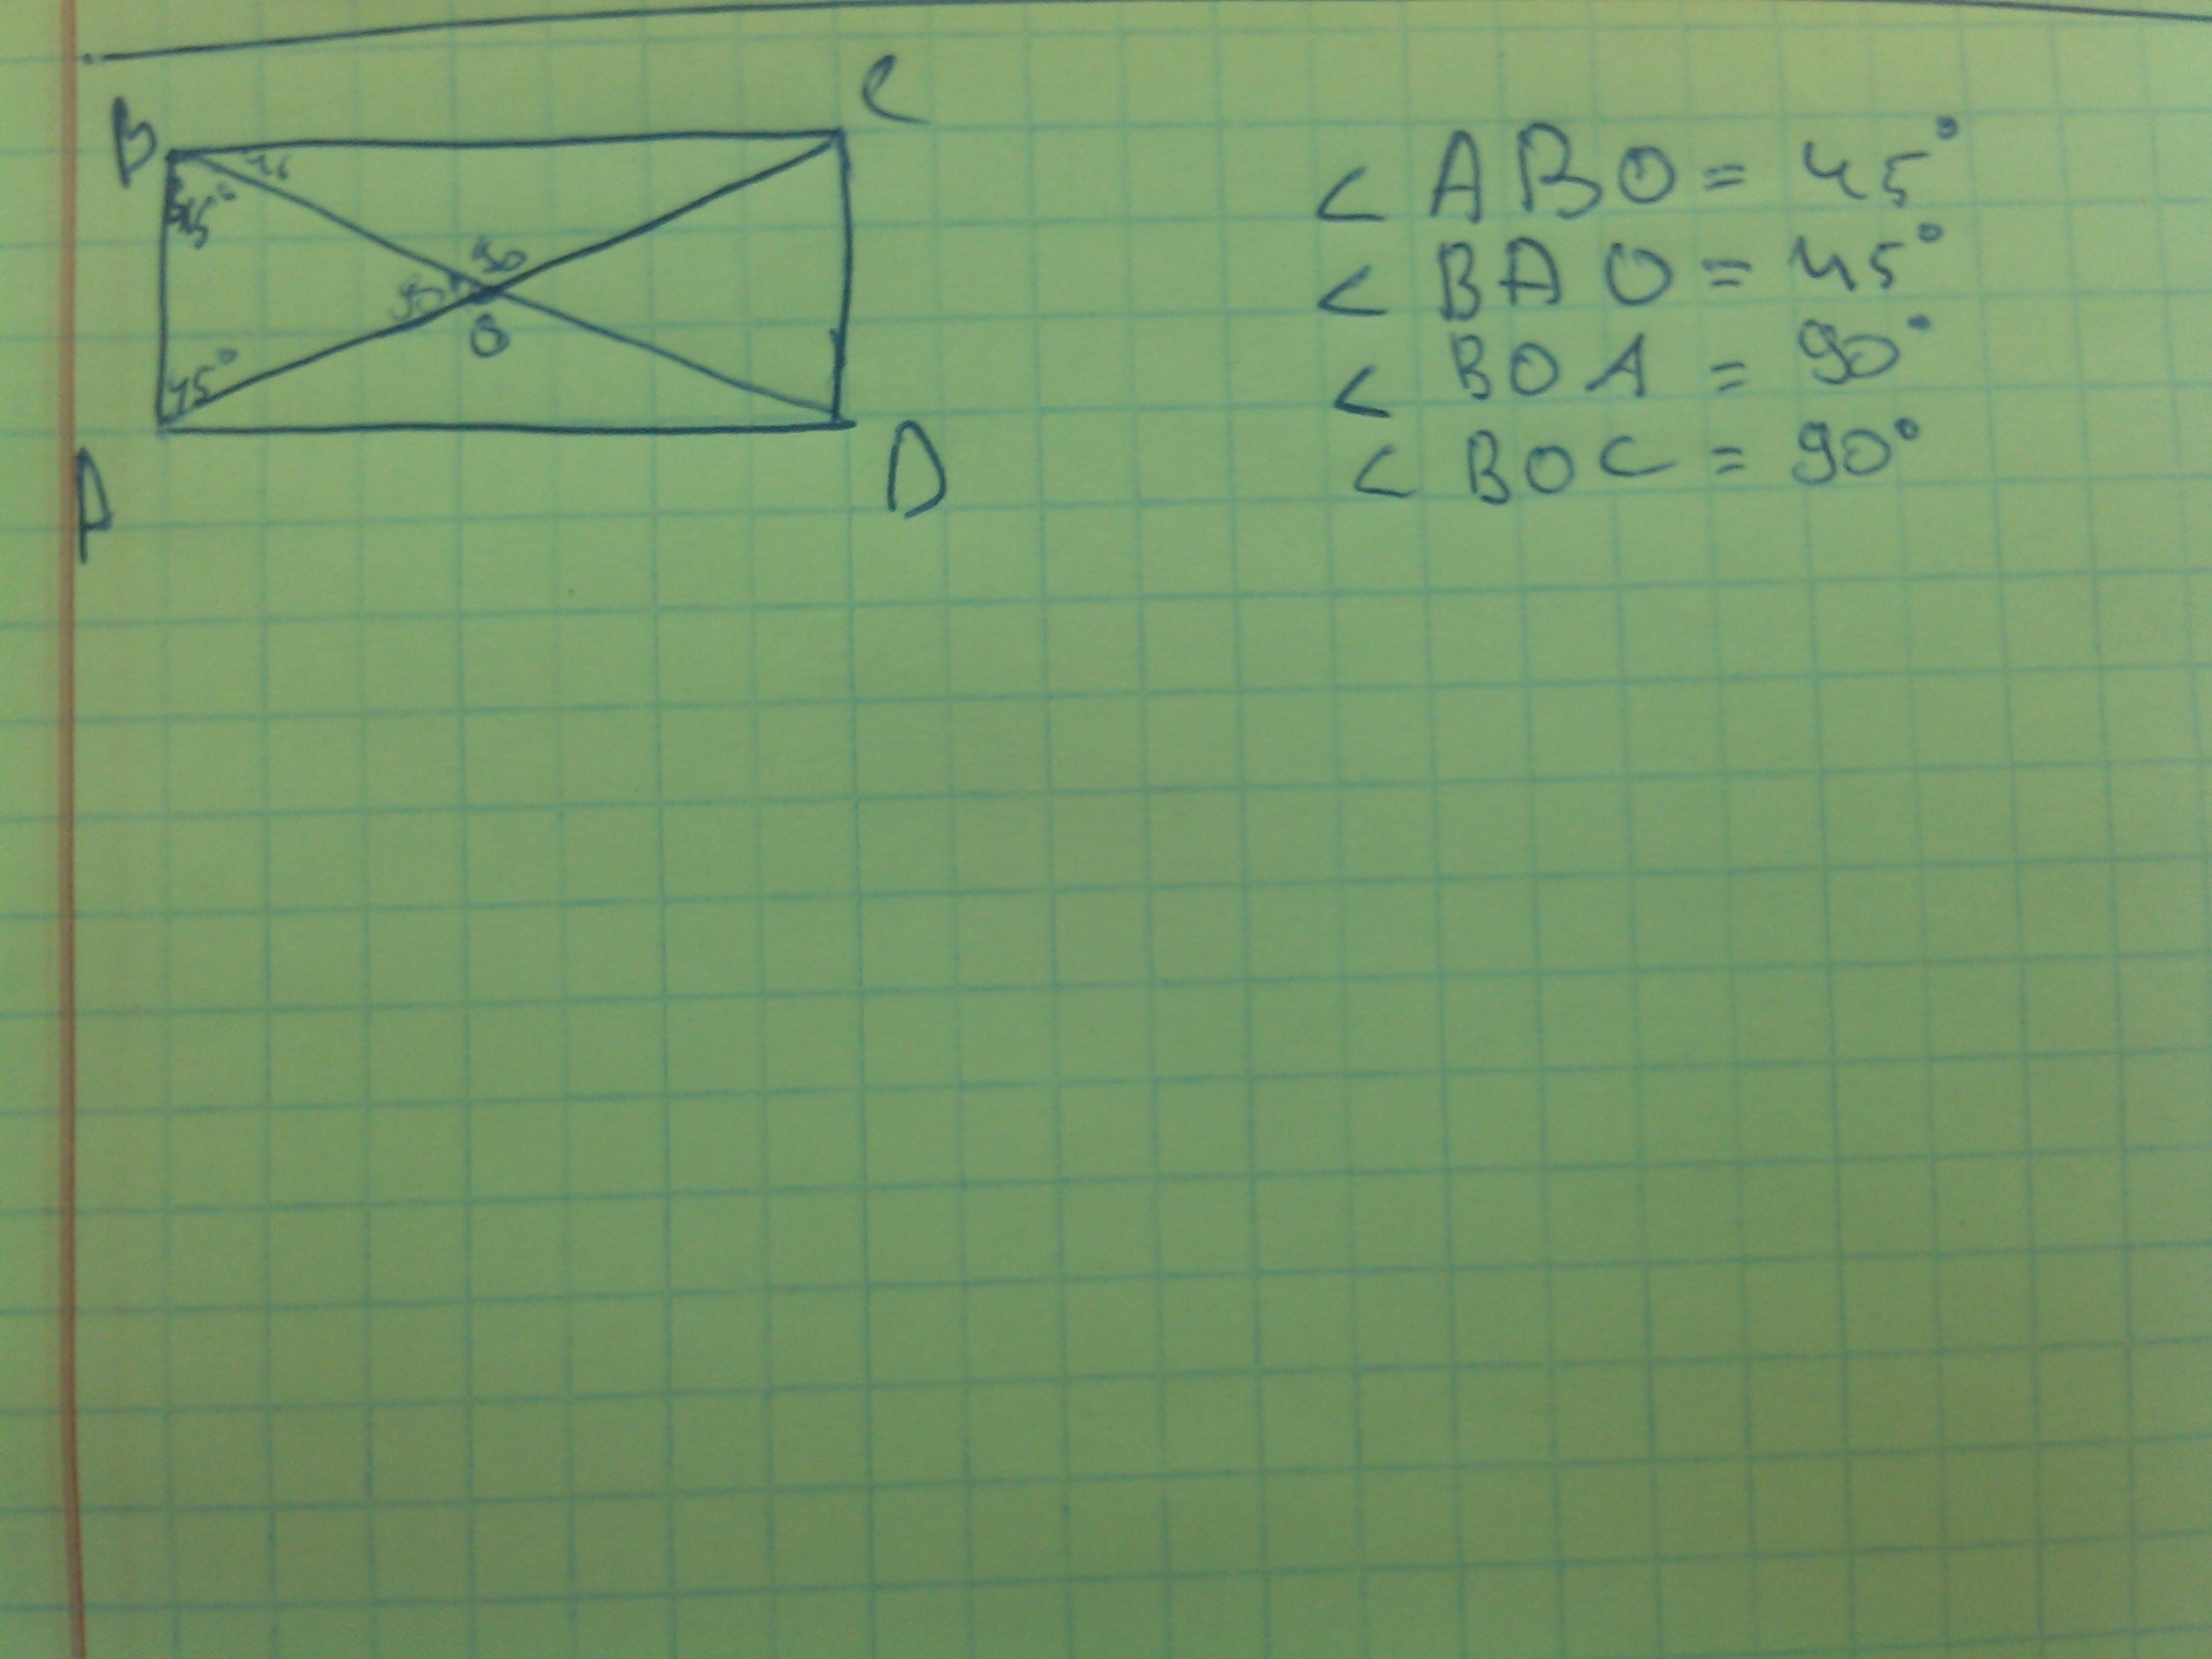 B C
45°
90
90°
O
45°
A D
< ABO = 45°
< BAO = 45°
< BOA = 90°
< BOC = 90°